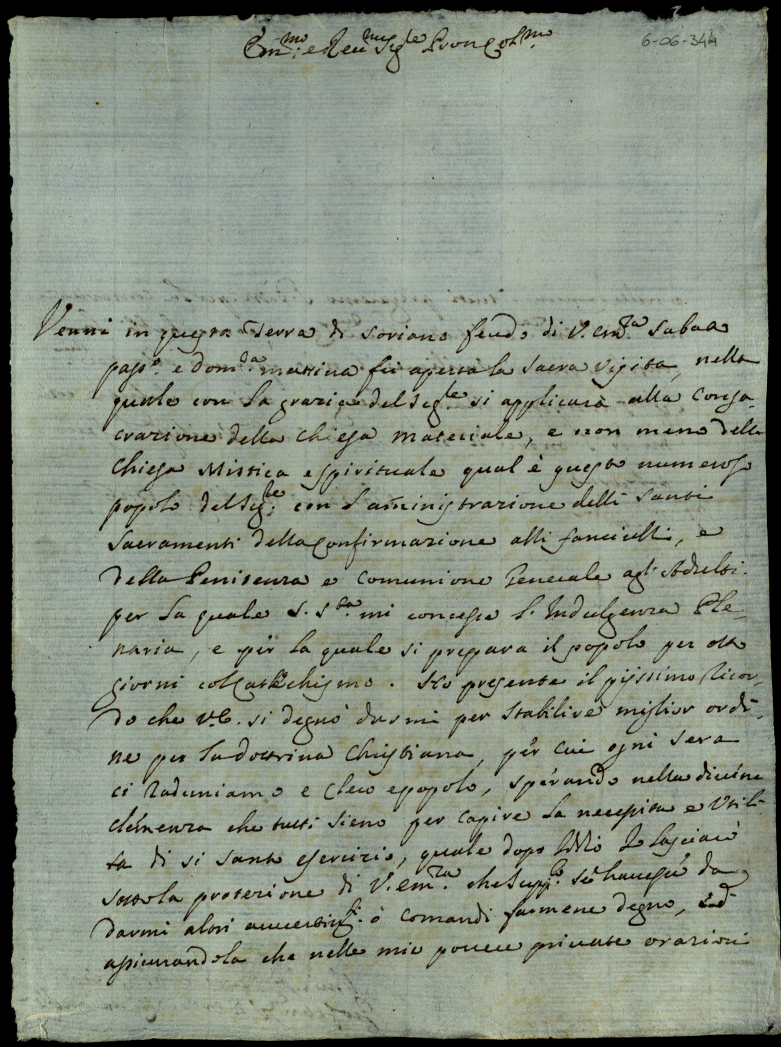 Em.mo e Rev.mo Sig.re Pron Col.mo
6-06-344
Venni in questa Terra di Soriano feudo di V. Em.za Sabato
pass.o e Dom.ca mattina fu aperta la Sacra Visita, nella
quale con la grazia del Sig.re si applicarà alla Consa-
crazione della Chiesa materiale, e non meno della
Chiesa Mistica e spirituale qual'è questo numeroso
popolo del Sig.re con l'aministrazione delli Santi
Sacramenti della Confirmazione alli fanciulli, e
della Penitenza e Comunione Generale agl'Adulti
per la quale S. S.tà mi concesse l'Indulgenza Ple-
naria, e per la quale si prepara il popolo per otto
giorni col Cathechismo. Ho presente il pijssimo ricor-
do che V.E. si degnò darmi per stabilire miglior ordi-
ne per la dottrina Christiana, per cui ogni sera
ci raduniamo e Clero e popolo, sperando nella divina
clemenza che tutti sieno per capire la necessità e utili-
tà di si santo esercizio, quale dopo Iddio lo lasciarò
sotto la protezione di V. Em.za che supp.co se havesse da
darmi altri avvertim.ti ò comandi farmene degno,
assicurandola che nelle mie povere private orazioni